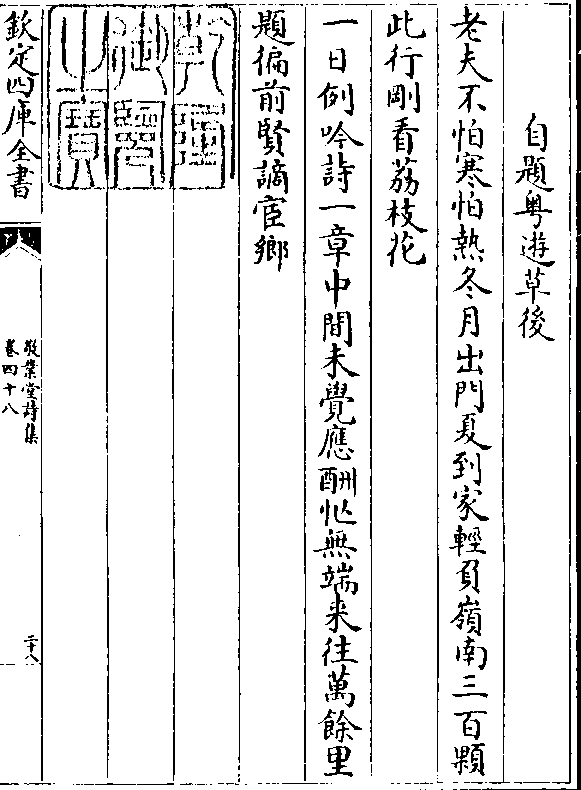 自題粤遊草後
老夫不怕寒怕熱冬月出門夏到家輕負嶺南三百顆
此行剛看荔枝花
一日例吟詩一章中間未覺應酬忙無端来往萬餘里
題徧前賢謫宦鄉
乾隆御覽之寶
欽定四庫全書
敬業堂詩集
卷四十八
二十八